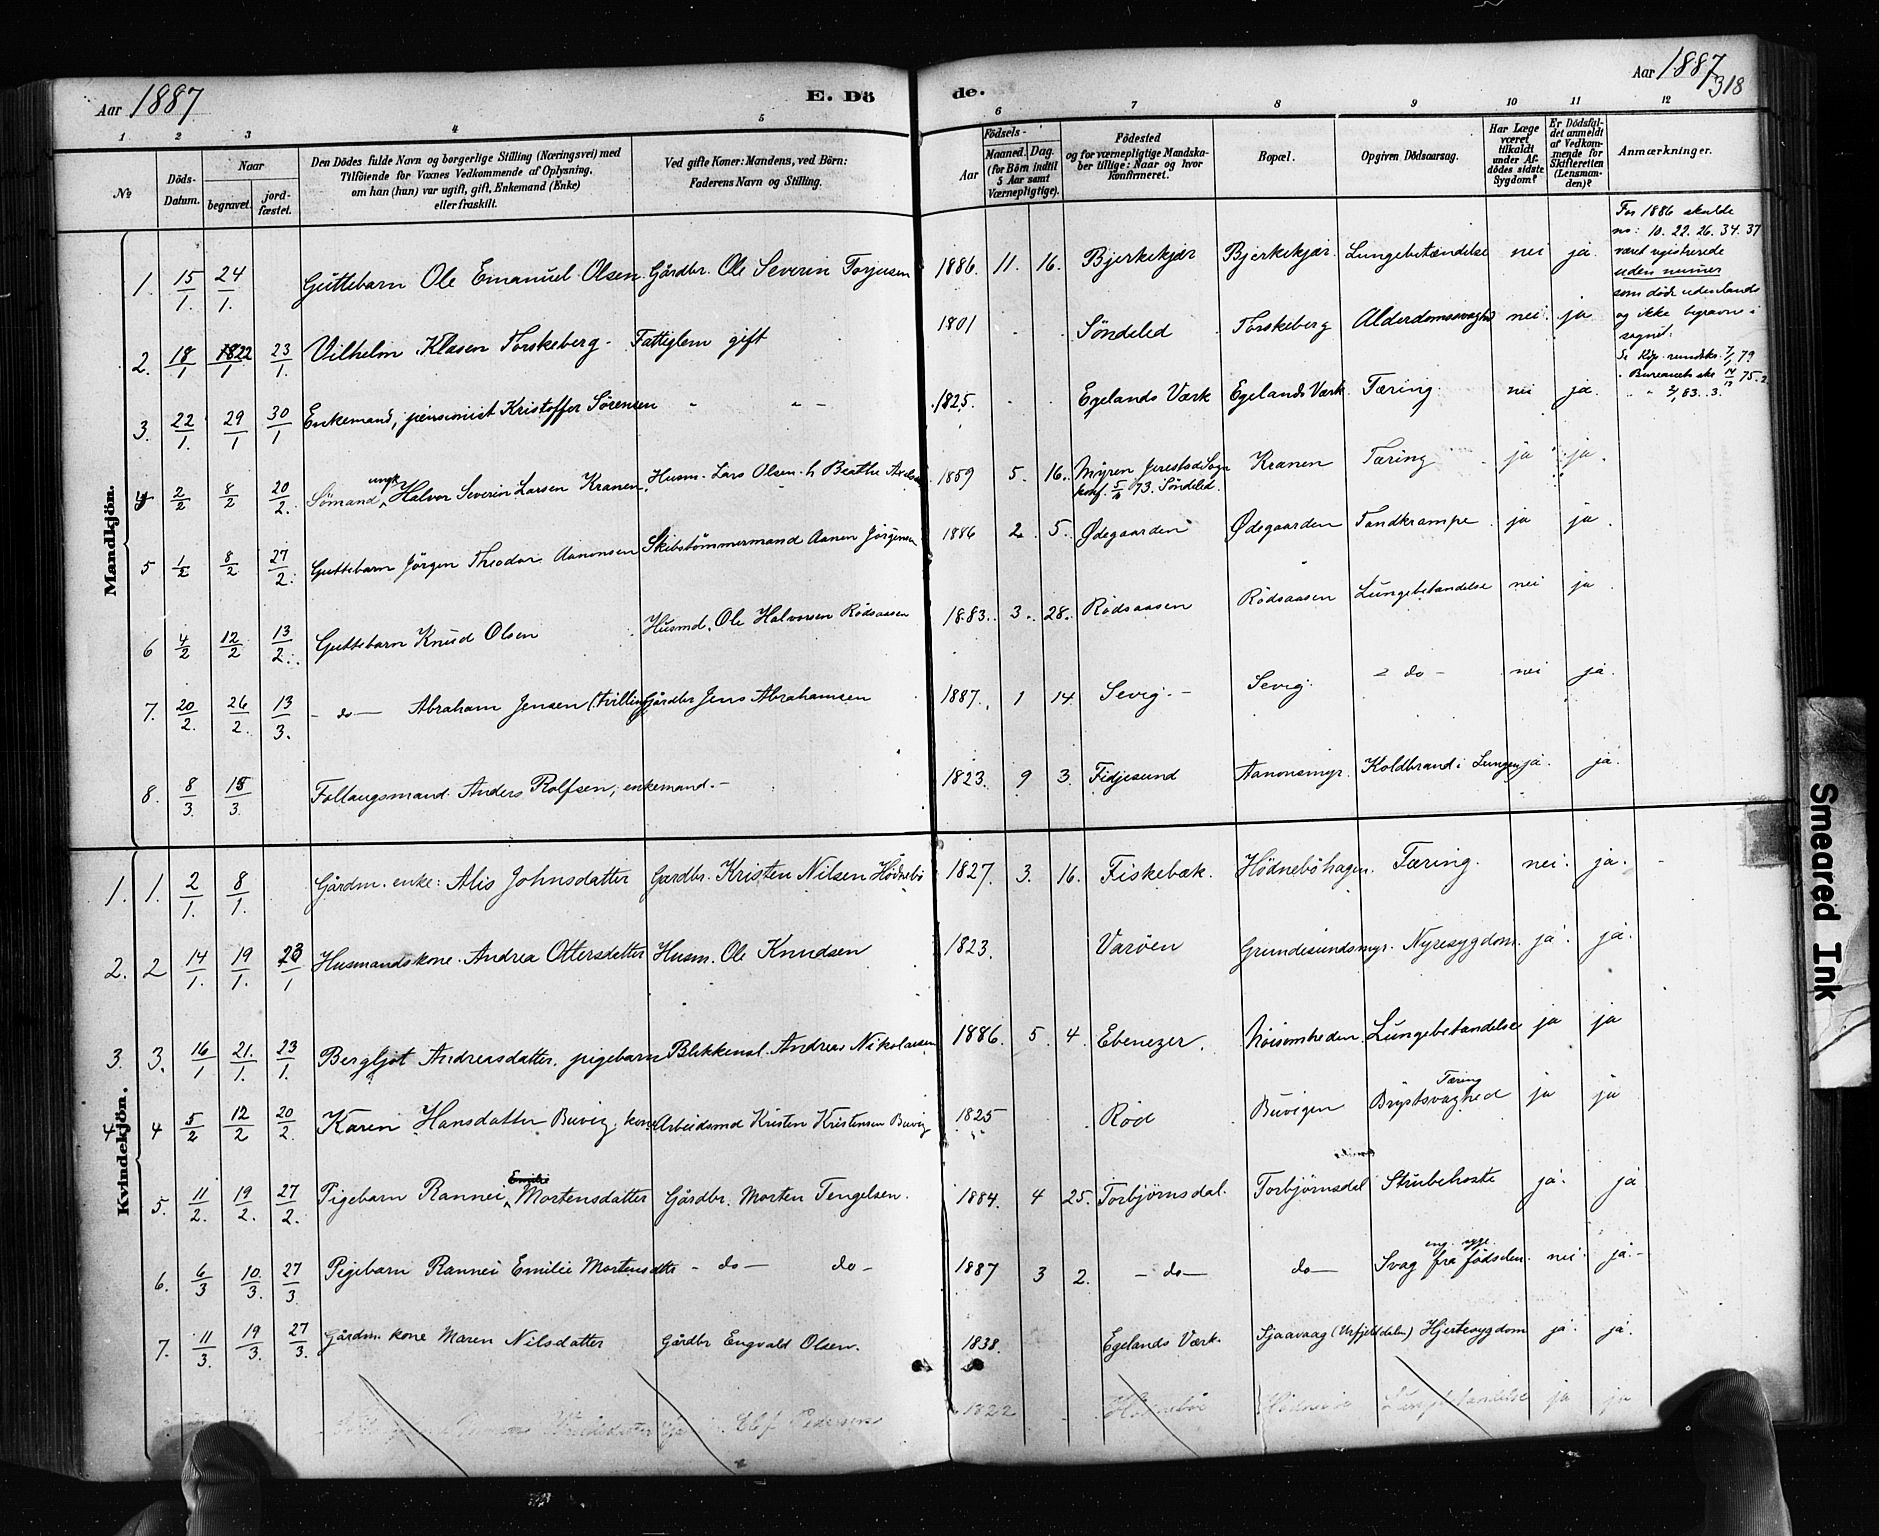 Aar 1887
E. Dö
de.
Aar 1887
318
1 2 3 4 5 6 7 8 9 10 11 12
№
Döds-Datum.
Naar
begravet.
jord-fæstet.
Den Dödes fulde Navn og borgerlige Stilling (Næringsvei) med
Tilföiende for Voxnes Vedkommende af Oplysning,
om han (hun) var ugift, gift, Enkemand (Enke)
eller fraskilt.
Ved gifte Koner: Mandens, ved Börn:
Faderens Navn og Stilling.
Födsels-
Aar
Maaned. Dag.
(for Börn indtil
5 Aar samt
Værnepligtige).
Födested
og for værnepligtige Mandska-
ber tillige: Naar og hvor
Konfirmeret.
Bopæl.
Opgiven Dödsaarsag.
Har Læge
været
tilkaldt
under Af-
dödes sidste
Sygdom?
Er Dödsfal-
det anmeldt
af Vedkom-
mende for
Skifteretten
(Lensman-
den)?
Anmærkninger.
Mandkjön.
1. 15/1. 24/1. Guttebarn Ole Emanuel Olsen Gårdbr. Ole Severin Torjusen 1886. 11. 16. Bjerkekjær Bjerkekjær. Lungebetændelse nei ja.
For 1886 skulde
no: 10. 22. 26. 34. 37
været registrerede
uden numer
som døde udenlands
og ikke begravne i
sognet.
2. 18/1 22/1 23/1. Vilhelm Klasen Torskeberg. Fattiglem gift 1801 Söndeled Torskeberg Alderdomssvaghed nei. ja
3. 22/1. 29/1 30/1 Enkemand, pensionist Kristoffer Sörensen 1825. Egelands Værk Egelands Værk Tæring. nei ja.
4 2/2 8/2 20/2. Sömand, ungk. Halvor Severin Larsen Kranen Husm. Lars Olsen h Beathe 1859 5. 16. Myren Sogn
konf. 73. Söndeled. Kranen Tæring ja ja.
5 1/2 8/2 27/2. Guttebarn Jörgen Theodor Aanonsen Skibstömmermand Aanon Jörgensen 1886 2. 5. Ødegaarden Ødegaarden Tandkrampe ja ja.
6 4/2 12/2 13/2. Guttebarn Knud Olsen Husmd. Ole Halvorsen Rödsaasen 1883. 3. 28. Rödsaasen Rödsaasen Lungebetandelse nei ja
7. 20/2. 26/2. 13/3. - do - Abraham Jensen (tvilling) Gårdbr Jens Abrahamsen 1887. 1 14. Sevig. - Sevig. - do - nei ja.
8. 8/3. 15/3. Follaugsmand. Anders Rolfsen, enkemand. - 1823. 9 3. Fidjesund Aanonsmyr. Koldbrand i Lungen ja. ja.
Kvindekjön.
1. 1. 2/1. 8/1. Gårdm. enke: Alis Johnsdatter Gardbr. Kristen Nilsen Hödnebö 1827. 3. 16. Fiskebæk. Hödneböhagen. Tæring. nei. ja.
2. 2 14/1. 19/1. 23/1 Husmandskone. Andrea Ottersdatter Husm. Ole Knudsen 1823. Varöen Grundesundsmyr. Nyresygdom. ja. ja.
3. 3. 16/1 21./1. 23/1. Bergljot Andreasdatter, pigebarn Blikkensl. Andreas Nikolaisen 1886. 5. 4. Ebenezer. Nöisomheden Lungebetandelse ja ja
4. 4 5/2 12/2 20/2. Karen Hansdatter Buvig, kone Arbeidsmd Kristen Kristensen Buvig 1825 Röd Buvigen Tæring
Brystsvaghed ja ja
5. 11/2. 19/2. 27/2. Pigebarn Rannei Mortensdatter Gårdbr. Morten Tengelsen. 1884. 4 25. Torbjörnsdal. Torbjörnsdal Strubehoste ja. ja
6. 6/3 10/3. 27/3 Pigebarn Rannei Emilie Mortensdtr - do - do - 1887 3 2. - do - do - Svag fra födselen. nei. ja. -
7. 11/3. 19/3. 27/3. Gårdm. kone Maren Nilsdatter Gårdbr Engvald Olsen. 1838. Egelands Værk. Sjaavaag (Urfjeldalen) Hjertesygdom ja. ja.
Olef Pedersen 1822 Hödnebö Hödnebö Lungebetandelse ja ja
Smeared Ink